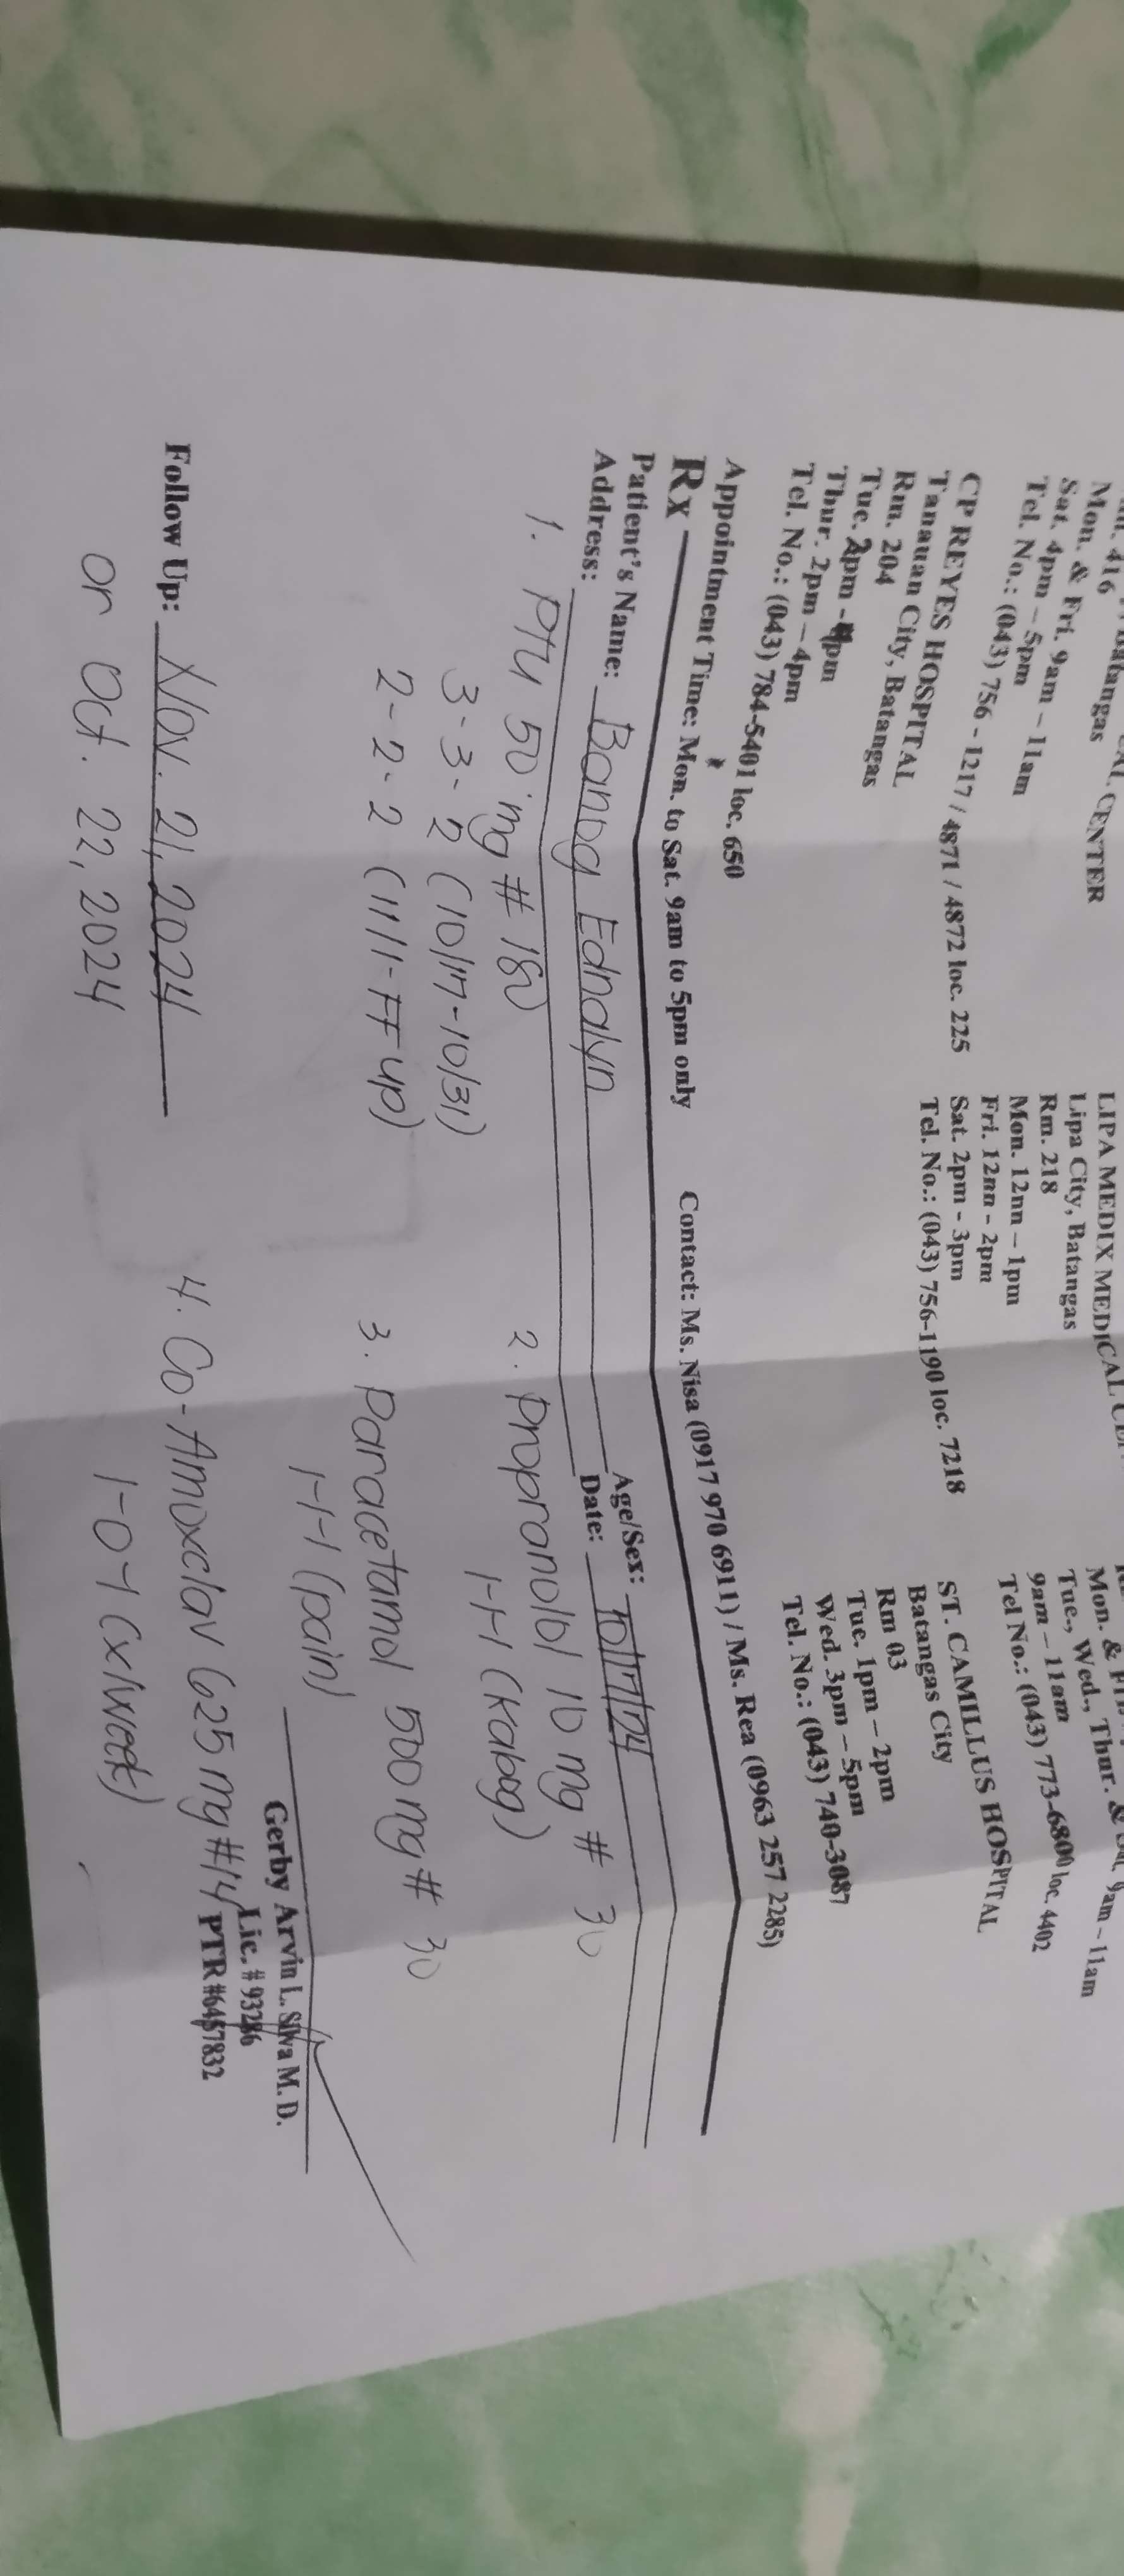 416
Mon. & Fri. 9am – 11am
Sat. 4pm – 5pm
Tel. No.: (043) 756 - 1217 / 4871 / 4872 loc. 225
CP REYES HOSPITAL
Tanauan City, Batangas
Rm. 204
Tue. 2pm - 4pm
Thur. 2pm – 4pm
Tel. No.: (043) 784-5401 loc. 650
CENTER
LIPA MEDIX MEDICAL
Lipa City, Batangas
Rm. 218
Mon. 12nn – 1pm
Fri. 12nn - 2pm
Sat. 2pm - 3pm
Tel. No.: (043) 756-1190 loc. 7218
Mon. &
Tue., Wed., Thur. & Sat. 9am – 11am
9am – 11am
Tel No.: (043) 773-6800 loc. 4402
ST. CAMILLUS HOSPITAL
Batangas City
Rm 03
Tue. 1pm – 2pm
Wed. 3pm – 5pm
Tel. No.: (043) 740-3087
Appointment Time: Mon. to Sat. 9am to 5pm only Contact: Ms. Nisa (0917 970 6911) / Ms. Rea (0963 257 2285)
Rx
Patient's Name: Banog Ednalyn Age/Sex:
Address: Date: 10/17/24
1. PTU 50 mg # 180
3-3-2 (10/17-10/31)
2-2-2 (11/1-FF up)
2. Propranolol 10 mg # 30
1-1-1 (kabog)
3. Paracetamol 500 mg # 30
1-1-1 (pain)
4. Co-Amoxclav 625 mg #14
1-0-1 (x1week)
Follow Up: Nov. 21, 2024
or Oct. 22, 2024
Gerby Arvin L. Silva M. D.
Lic. # 93286
PTR #6457832